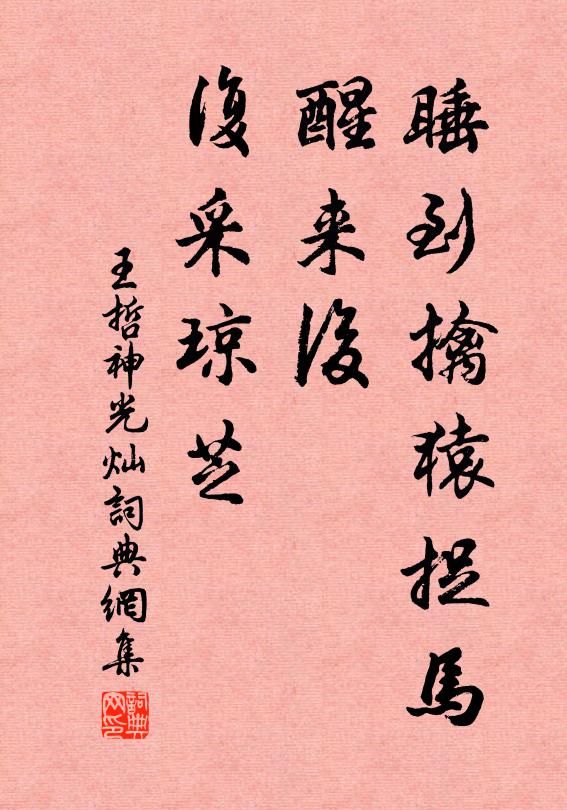 睡到擒猿捉馬
醒来後
復采琼芝
王哲神光灿詞典網集
詞典网印